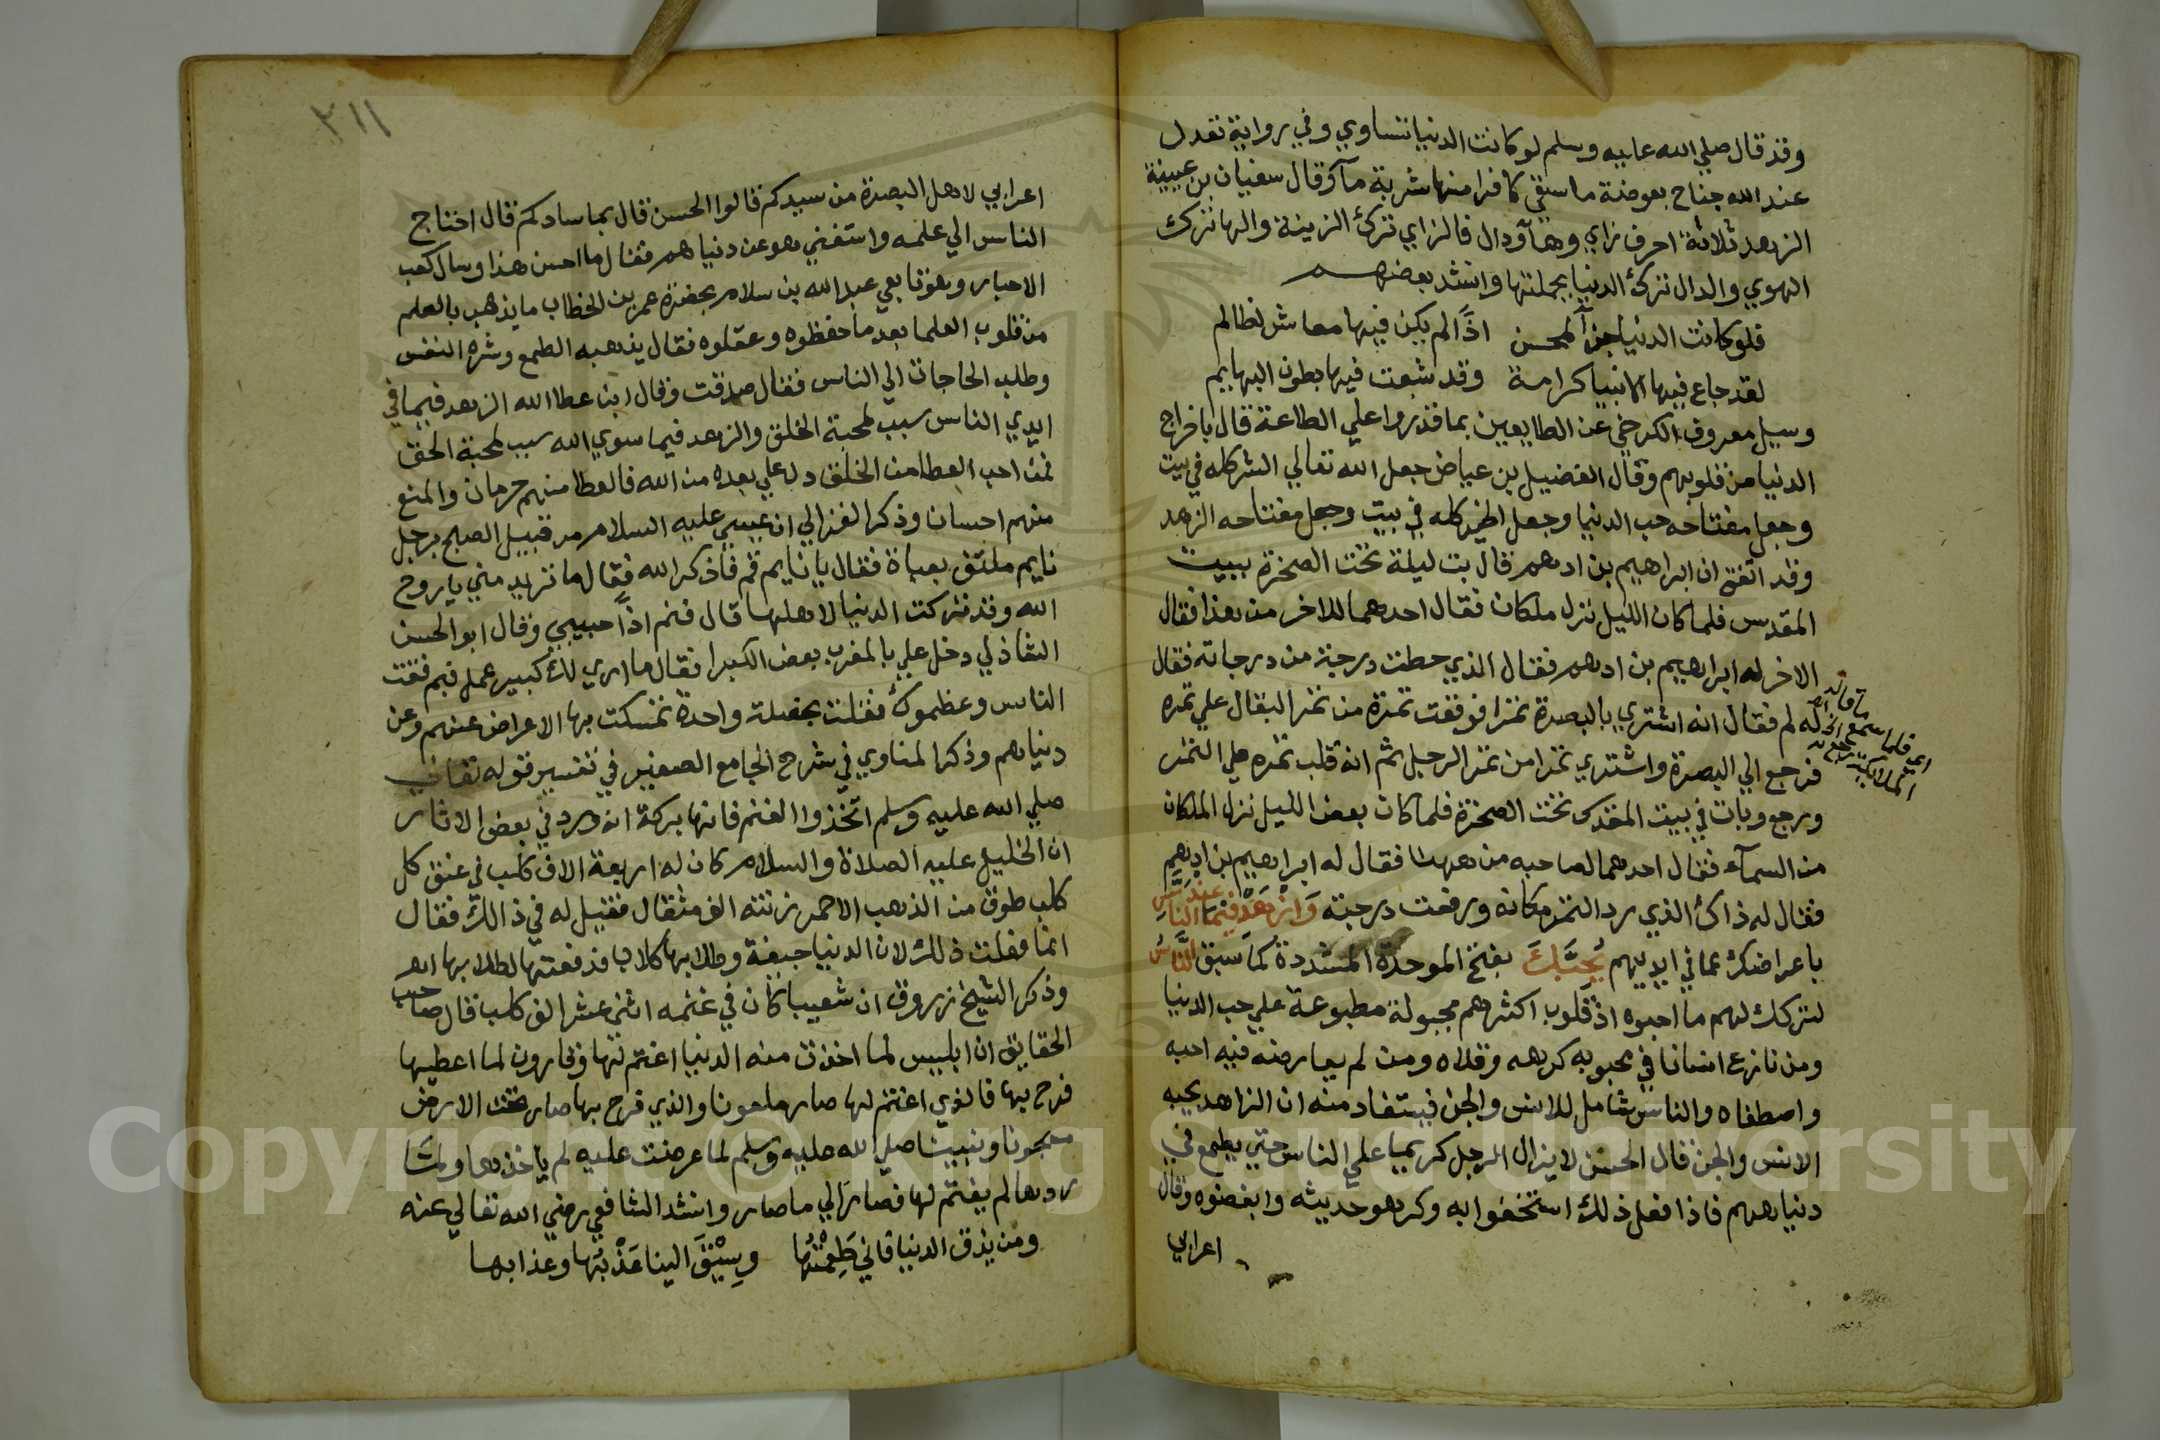 وقد قال صلي الله عليه وسلم لو كانت الدنيا تساوي وفي رواية تعدل
عند الله جناح بعوضة ما سقي كافرا منها شربة مآ وقال سفيان بن عيينة
الزهد ثلاثة احرف زاي وهآ ودال فالزاي ترك الزينة والها ترك
الهوي والدال ترك الدنيا بجملتها وانشد بعضهم
فلو كانت الدنيا جزآ لمحسن اذا لم يكن فيها معاش لظالم
لقد جاع فيها الانبيا كرامة وقد شبعت فيها بطون البهايم
وسيل معروف الكرخي عن الطايعين بما قدروا علي الطاعة قال باخراج
الدنيا من قلوبهم وقال الفضيل بن عياض جعل الله تعالي الشر كله في بيت
وجعل مفتاحه حب الدنيا وجعل الخير كله في بيت وجعل مفتاحه الزهد
وقد اتفق ان ابراهيم بن ادهم قال بت ليلة تحت الصخرة ببيت
المقدس فلما كان الليل نزل ملكان فقال احدهما للاخر من هذا فقال
الاخر له ابراهيم بن ادهم فقال الذي حطت درجة من درجاته فقال
له لم فقال انه اشتري بالبصرة تمرا فوقعت تمرة من تمر البقال علي تمره
فرجع الي البصرة واشتري تمرا من تمر الرجل ثم انه قلب تمره علي التمر
ورجع وبات في بيت المقدس تحت الصخرة فلما كان بعض الليل نزل الملكان
من السمآء فقال احدهما لصاحبه من ههنا فقال له ابراهيم بن ادهم
فقال له ذاك الذي رد التمر مكانه ورفعت درجته وَازْهَدْ فيما عند الناس
باعراضك عما في ايديهم يُحِبَّكَ بفتح الموحدة المشددة كما سبق النَّاسُ
لتركك لهم ما احبوه اذ قلوب اكثرهم مجبولة مطبوعة علي حب الدنيا
ومن نازع انسانا في محبوبه كرهه وقلاه ومن لم يعارضه فيه احبه
واصطفاه والناس شامل للانس والجن فيستفاد منه ان الزاهد يحبه
الانس والجن قال الحسن لا يزال الرجل كريما علي الناس حتي يطمع في
دنياهم فاذا فعل ذلك استخفوا به وكرهو حديثه وابغضوه وقال
اعرابي
اي فلما سمع
٣١١
اعرابي لاهل البصرة من سيدكم قالوا الحسن قال بما سادكم قال احتاج
الناس الي علمه واستغني هو عن دنياهم فقال ما احسن هذا وسال كعب
الاحبار وهو تابعي عبد الله بن سلام بحضرة عمر بن الخطاب ما يذهب بالعلم
من قلوب العلما بعد ما حفظوه وعقلوه فقال يذهبه الطمع وشره النفس
وطلب الحاجات الي الناس فقال صدقت وقال ابن عطا الله الزهد فيما في
ايدي الناس سبب لمحبة الخلق والزهد فيما سوي الله سبب لمحبة الحق
فمن احب العطا من الخلق دل علي بعده من الله فالعطا منهم حرمان والمنع
منهم احسان وذكر الغزالي ان عيسي عليه السلام مر قبيل الصبح برجل
نايم ملتف بعباة فقال يا نايم قم فاذكر الله فقال ما تريد مني يا روح
الله وقد تركت الدنيا لاهلها قال فنم اذاً حبيبي وقال ابو الحسن
الشاذلي دخل علي بالمغرب بعض الكبرا فقال ما اري لك كبير عمل فبم فقت
الناس وعظموك فقلت بخصلة واحدة تمسكت بها الاعراض عنهم وعن
دنياهم وذكر المناوي في شرح الجامع الصغير في تفسير قوله تعالي
صلي الله عليه وسلم اتخذوا الغنم فانها بركة انه ورد في بعض الاثار
ان الخليل عليه الصلاة والسلام كان له اربعة الاف كلب في عنق كل
كلب طوق من الذهب الاحمر زنته الف مثقال فقيل له في ذالك فقال
انما فعلت ذلك لان الدنيا جيفة وطلابها كلاب فدفعتها لطلابها اه
وذكر الشيخ زروق ان شعيبا كان في غنمه اثني عشر الف كلب قال صاحب
الحقايق ان ابليس لما اخذت منه الدنيا اغتم لها وقارون لما اعطيها
فرح بها فالذي اغتم لها صار ملعونا والذي فرح بها صار تحت الارض
مسجونا ونبينا صلي الله عليه وسلم لما عرضت عليه لم ياخذها ولما
ردها لم يغتم لها فصار الي ما صار وانشد الشافعي رضي الله تعالي عنه
ومن يذق الدنيا فاني طَعِمْتُها وسِيْقَ الينا عَذْبُها وعذابها
Copyright © King Saud University